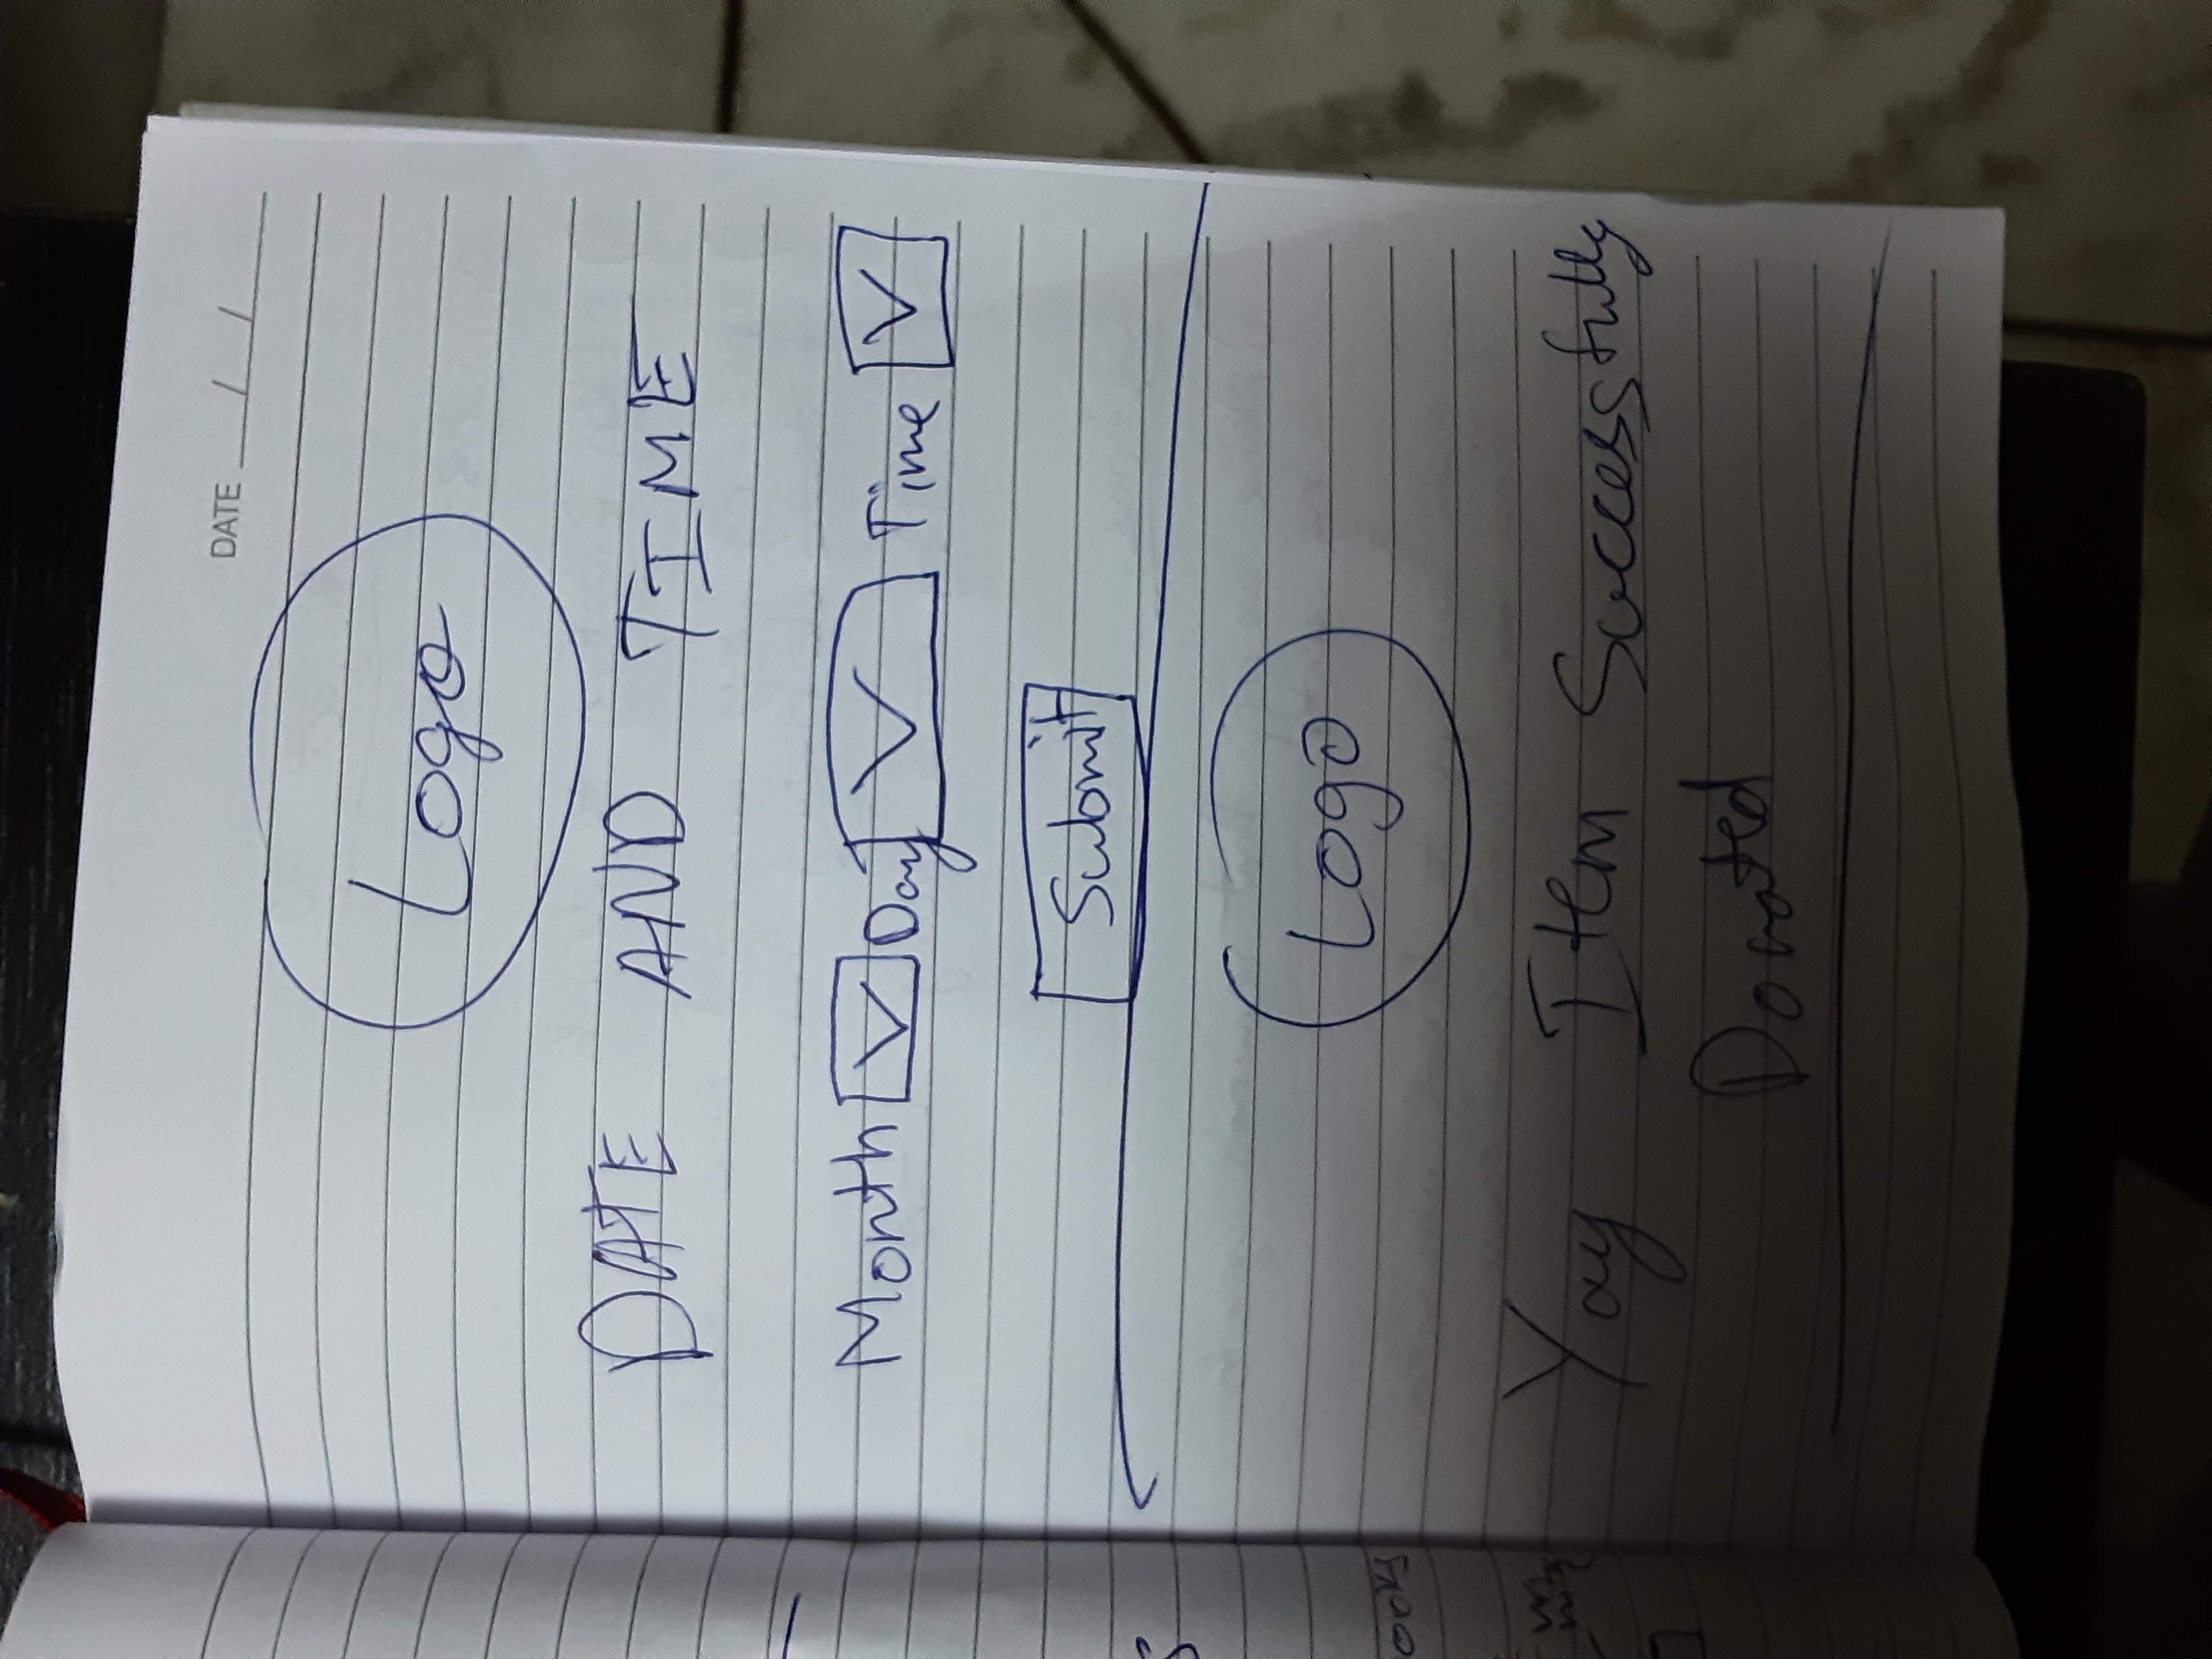 DATE / /
Logo
DATE AND TIME
Month Day Time
Submit
Logo
Yay Item Successfully
Donated
ooks